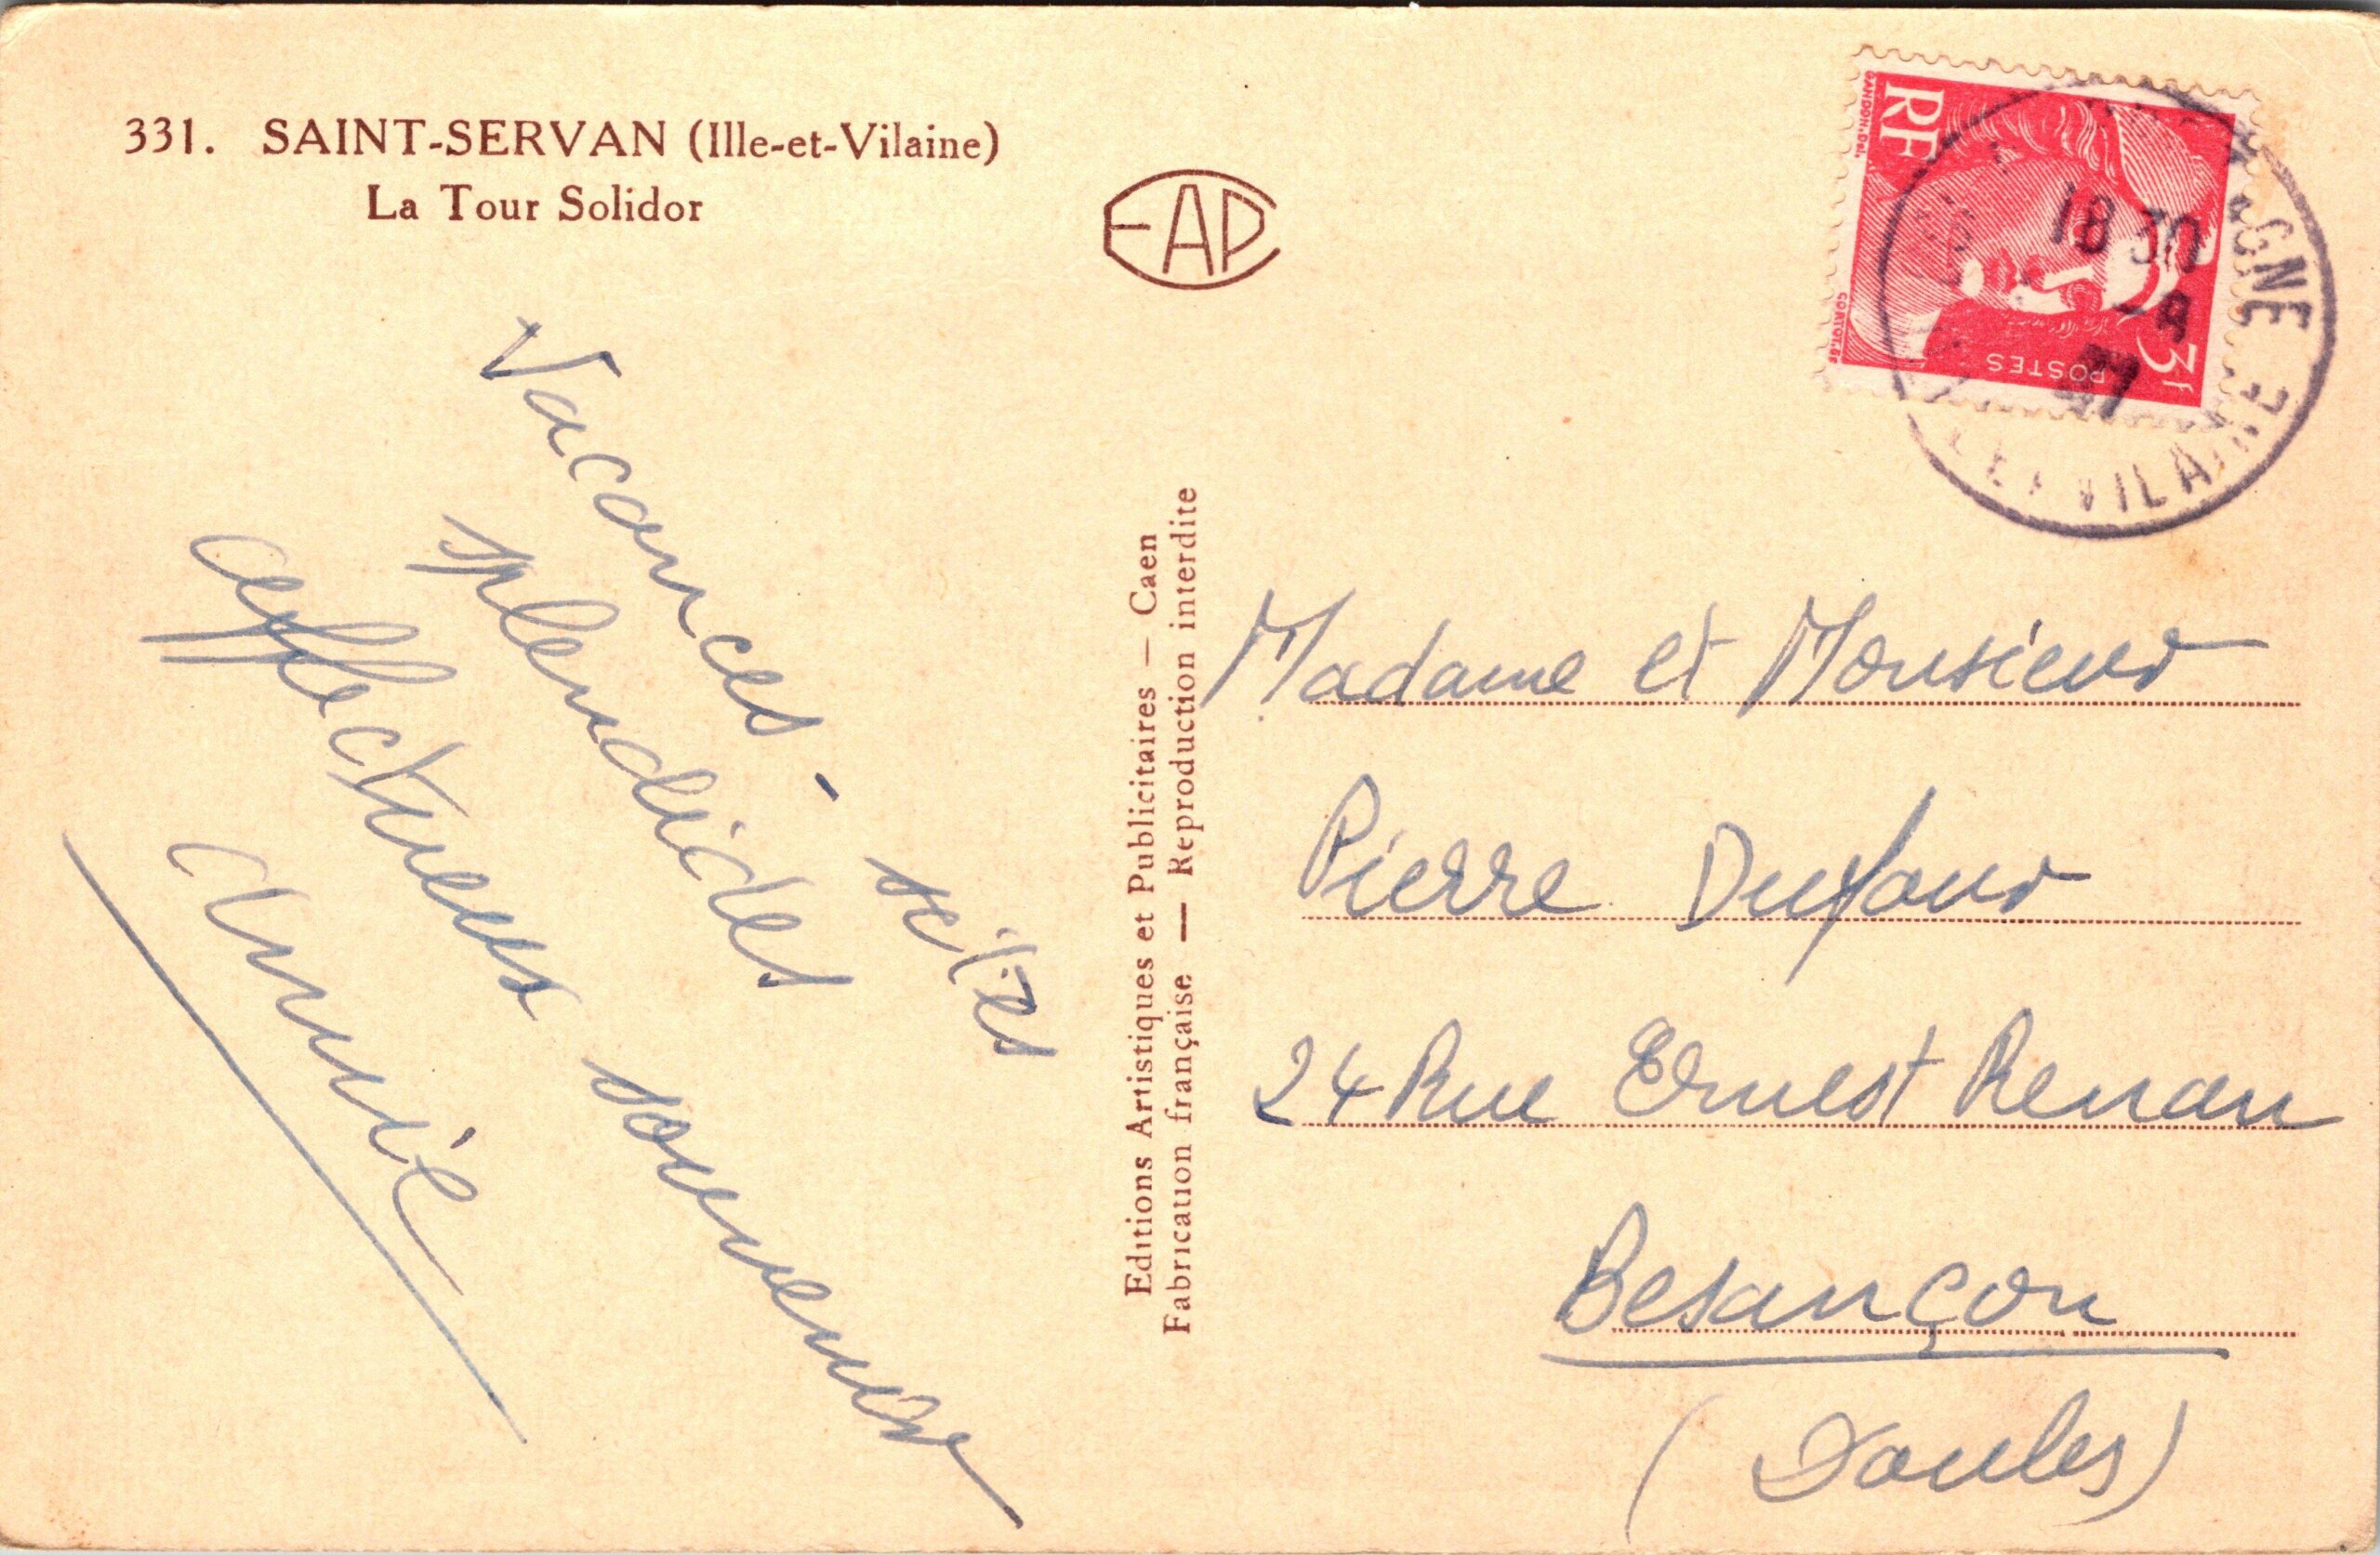 331. SAINT-SERVAN (Ille-et-Vilaine)
La Tour Solidor
EAP
Vacances - sites
splendides
affectueux souvenir
Annie
Editions Artistiques et Publicitaires — Caen
Fabrication française — Reproduction interdite
RF
GANDON. DEL.
CORTOT. SC
POSTES
3f
18 30
-8
47
GNE
ILLE ET VILAINE
Madame et Monsieur
Pierre Dufour
24 Rue Ernest Renan
Besançon
(Doubs)